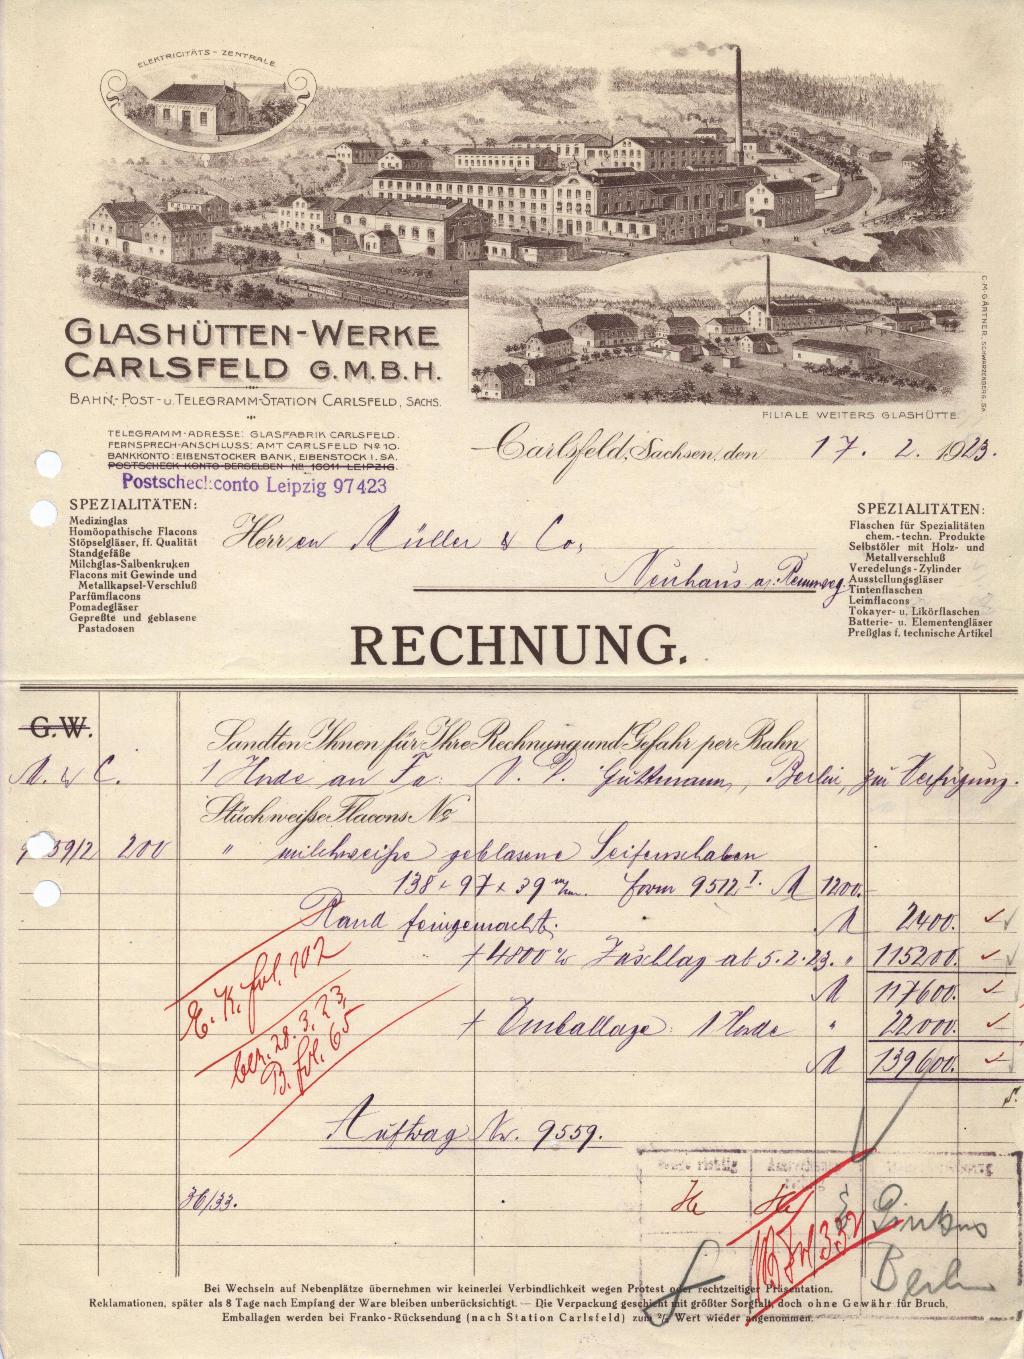 ELEKTRICITÄTS-ZENTRALE
GLASHÜTTEN-WERKE
CARLSFELD G.M.B.H.
BAHN-, POST- u. TELEGRAMM-STATION CARLSFELD, SACHS.
C.M. GÄRTNER, SCHWARZENBERG, SA.
FILIALE WEITERS GLASHÜTTE.
TELEGRAMM-ADRESSE: GLASFABRIK CARLSFELD.
FERNSPRECH-ANSCHLUSS: AMT CARLSFELD No 10.
BANKKONTO: EIBENSTOCKER BANK, EIBENSTOCK I. SA.
POSTSCHECK-KONTO DERSELBEN No 16011 LEIPZIG.
Postscheckconto Leipzig 97423
Carlsfeld, Sachsen, den 17. 2. 1923.
SPEZIALITÄTEN:
Medizinglas
Homöopathische Flacons
Stöpselgläser, ff. Qualität
Standgefäße
Milchglas-Salbenkruken
Flacons mit Gewinde und
Metallkapsel-Verschluß
Parfümflacons
Pomadegläser
Gepreßte und geblasene
Pastadosen
Herren Müller & Co,
Neuhaus a. Rennweg.
SPEZIALITÄTEN:
Flaschen für Spezialitäten
chem.-techn. Produkte
Selbstöler mit Holz- und
Metallverschluß
Veredelungs-Zylinder
Ausstellungsgläser
Tintenflaschen
Leimflacons
Tokayer- u. Likörflaschen
Batterie- u. Elementengläser
Preßglas f. technische Artikel
RECHNUNG.
G.W.
Sandten Ihnen für Ihre Rechnung und Gefahr per Bahn
M. & C. 1 Horde an Fa: Guttmann, Berlin, zur Verfügung.
Stück weiße Flacons No
59/2 200 " milchweiße geblasene Seifenschalen
138 x 97 x 39 m/m. form 9512 I. M 1200.
Rand feingemacht. M 2400.
+ 4800 % Zuschlag ab 5.2.23. " 115200.
M 117600.
+ Emballage: 1 Horde " 22000.
M 139600.
E. K. fol. 702
bez. 28. 3. 23.
B. fol. 65
Auftrag Nr. 9559.
36/33.
Pinkus
Berlin
Bei Wechseln auf Nebenplätze übernehmen wir keinerlei Verbindlichkeit wegen Protest oder rechtzeitiger Präsentation.
Reklamationen, später als 8 Tage nach Empfang der Ware bleiben unberücksichtigt. — Die Verpackung geschieht mit größter Sorgfalt, doch ohne Gewähr für Bruch.
Emballagen werden bei Franko-Rücksendung (nach Station Carlsfeld) zum 2/3 Wert wieder angenommen.